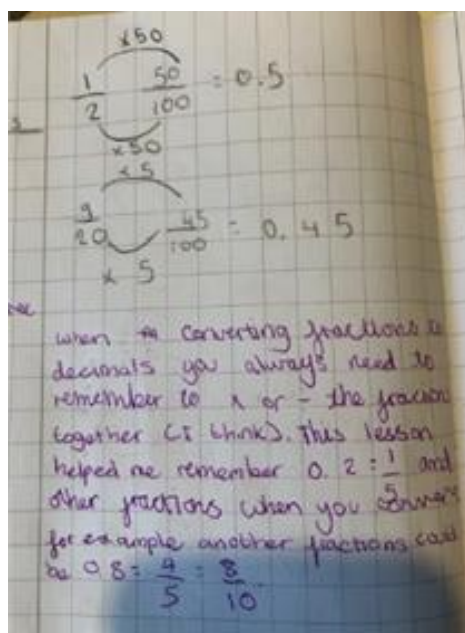 ×50
1/2 50/100 = 0.5
×50
×5
9/20 45/100 = 0.45
× 5
when converting fractions to
decimals you always need to
remember to x or - the fraction
together (I think). This lesson
helped me remember 0.2 = 1/5 and
other fractions when you convert
for example another fractions could
be 0.8 = 4/5 = 8/10.